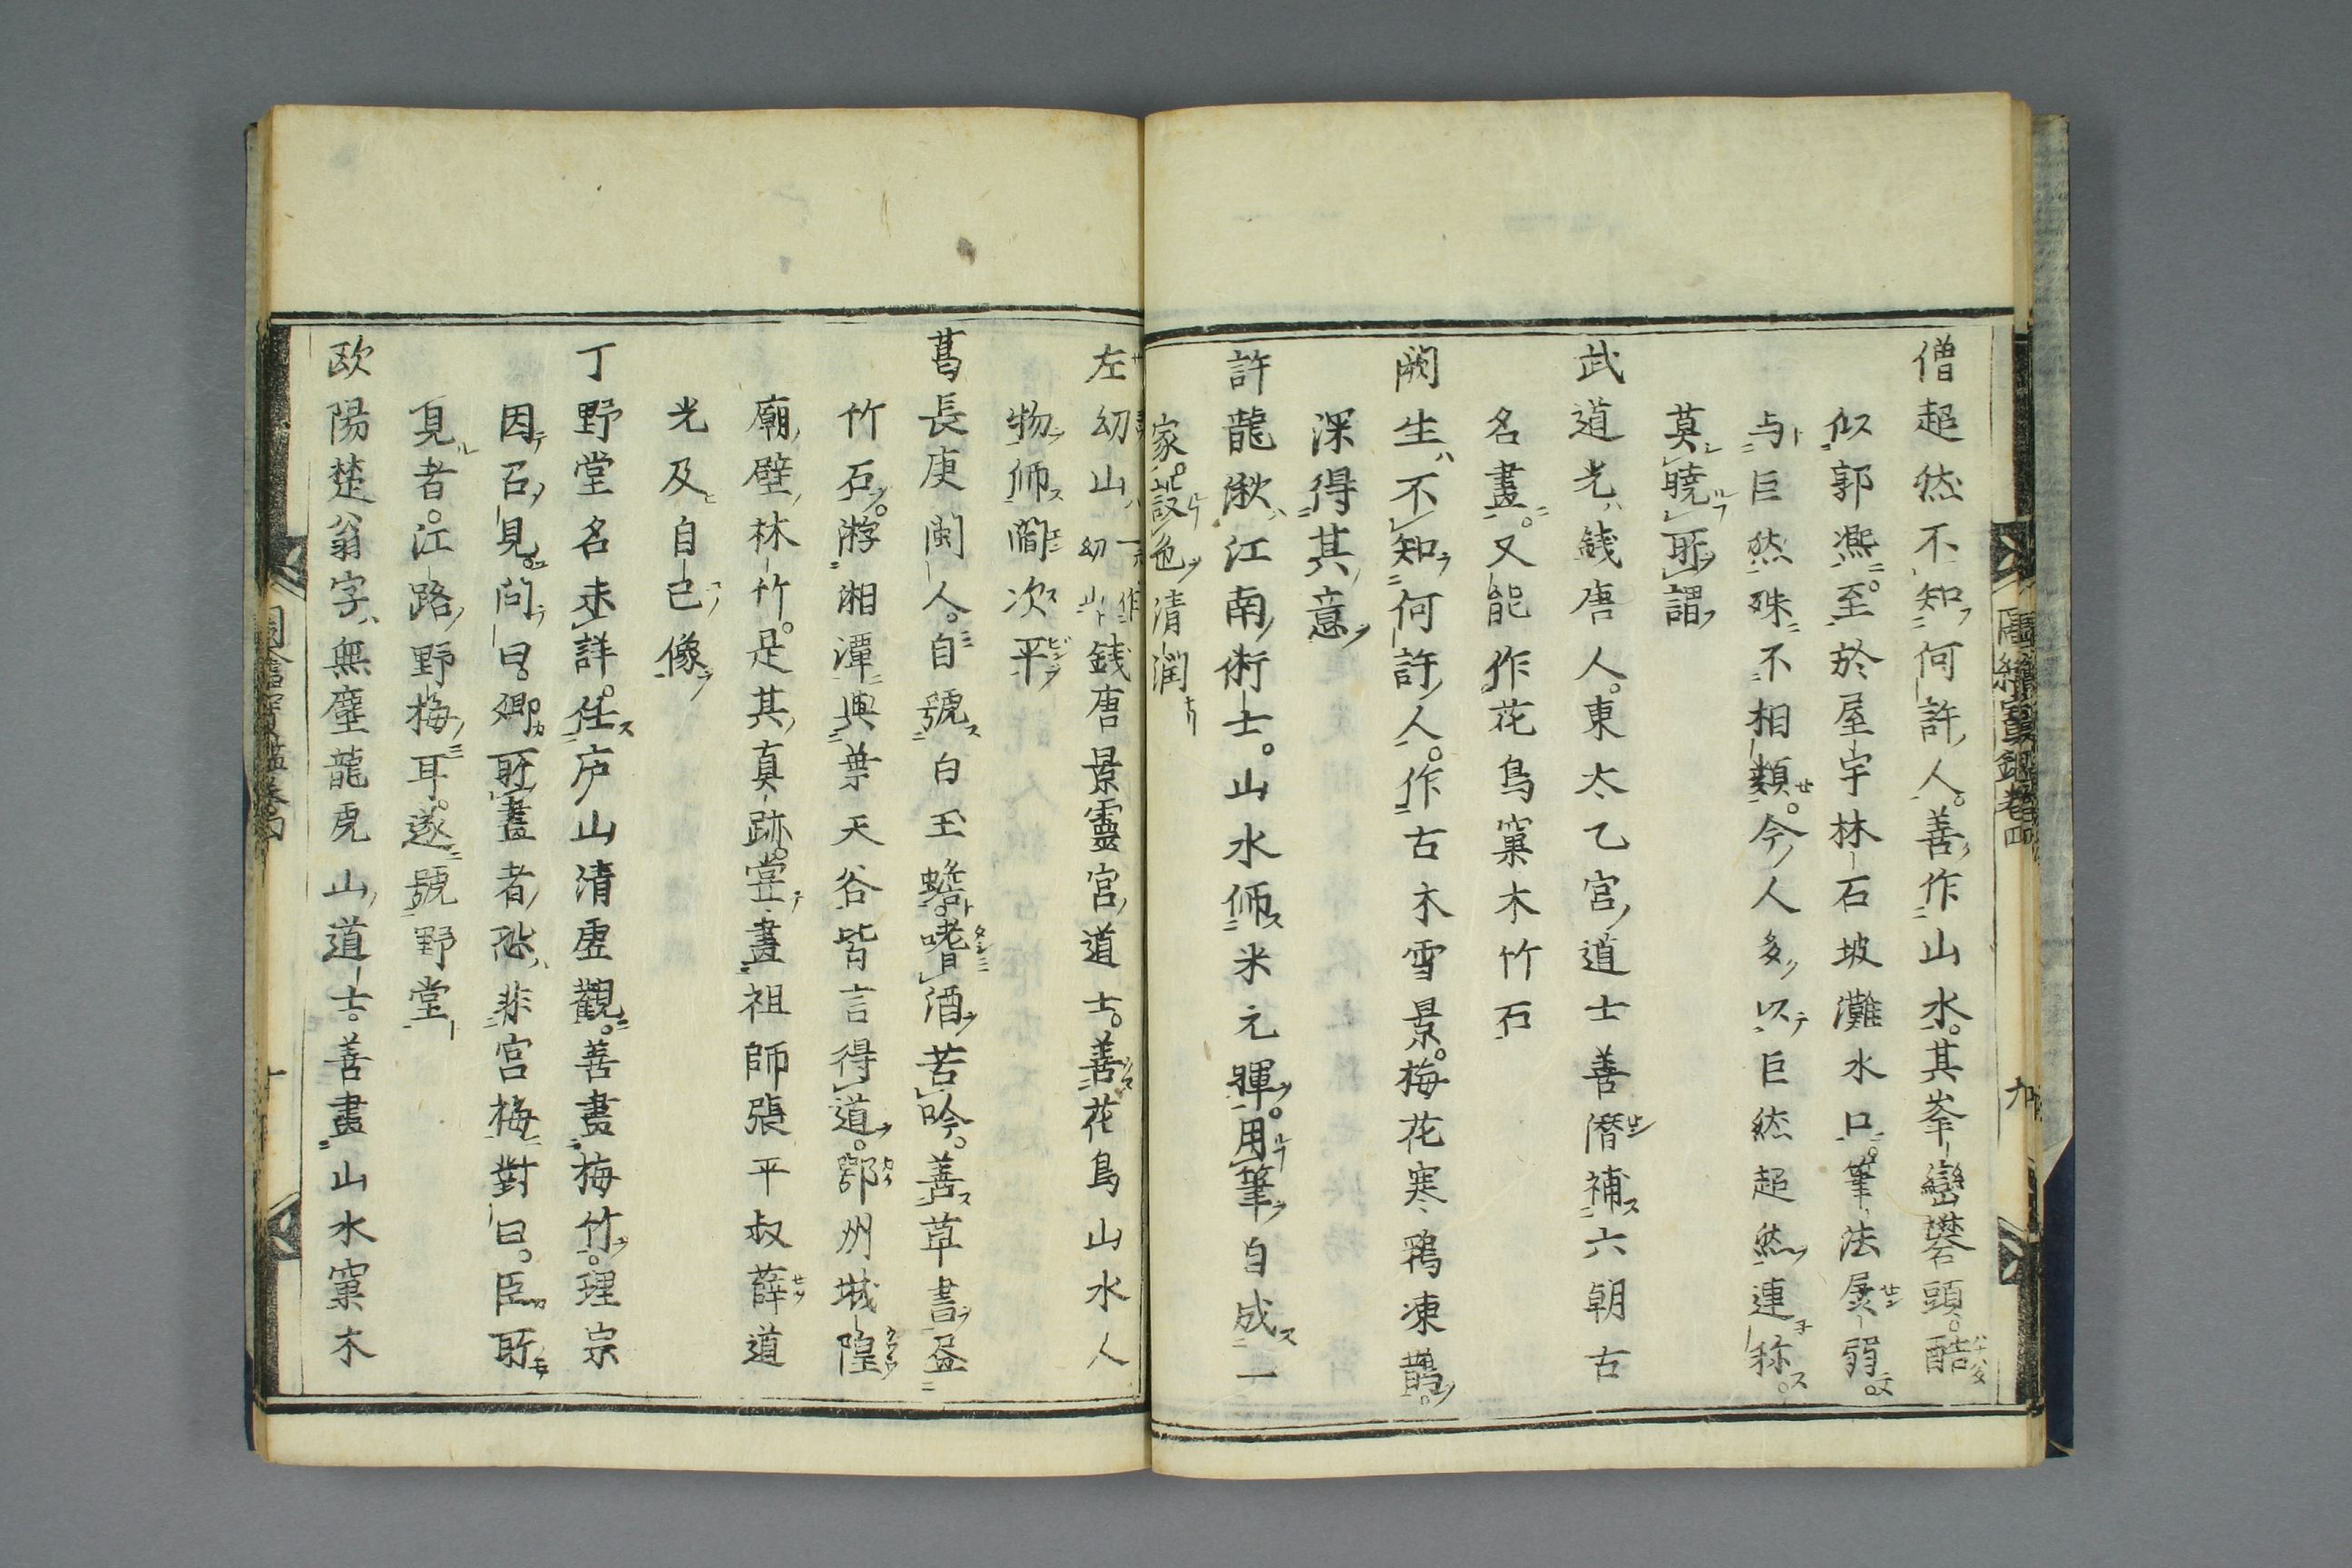 僧超然不知何許人。善作山水。其峯巒礬頭。酷
似郭凞。至於屋宇林石坡灘水口。筆法孱弱。
与巨然殊不相類。今人多以巨然超然連稱。
莫曉所謂
武道光銭唐人。東太乙宮道士善潛補六朝古
名畫。又能作花鳥窠木竹石
闕生不知何許人。作古木雪景。梅花寒鴉凍鵲。
深得其意
許龍湫江南術士。山水師米元暉。用筆自成一
家。設色清潤
左幼山一作幼山銭唐景靈宮道士。善花鳥山水人
物師閻次平
葛長庚閩人。自號白玉蟾。嗜酒苦吟。善草書盆
竹石。游湘潭與葉天谷皆言得道。鄂州城隍
廟壁林竹。是其真跡。嘗畫祖師張平叔薛道
光及自己像
丁野堂名未詳。住庐山清虚觀。善畫梅竹。理宗
因召見。問曰。卿所畫者恐非宮梅對曰。臣所
見者。江路野梅耳。遂號野堂
欧陽楚翁字無塵龍虎山道士。善畫山水窠木
圖繪寳鑑卷四
九
圖繪寳鑑卷四
十